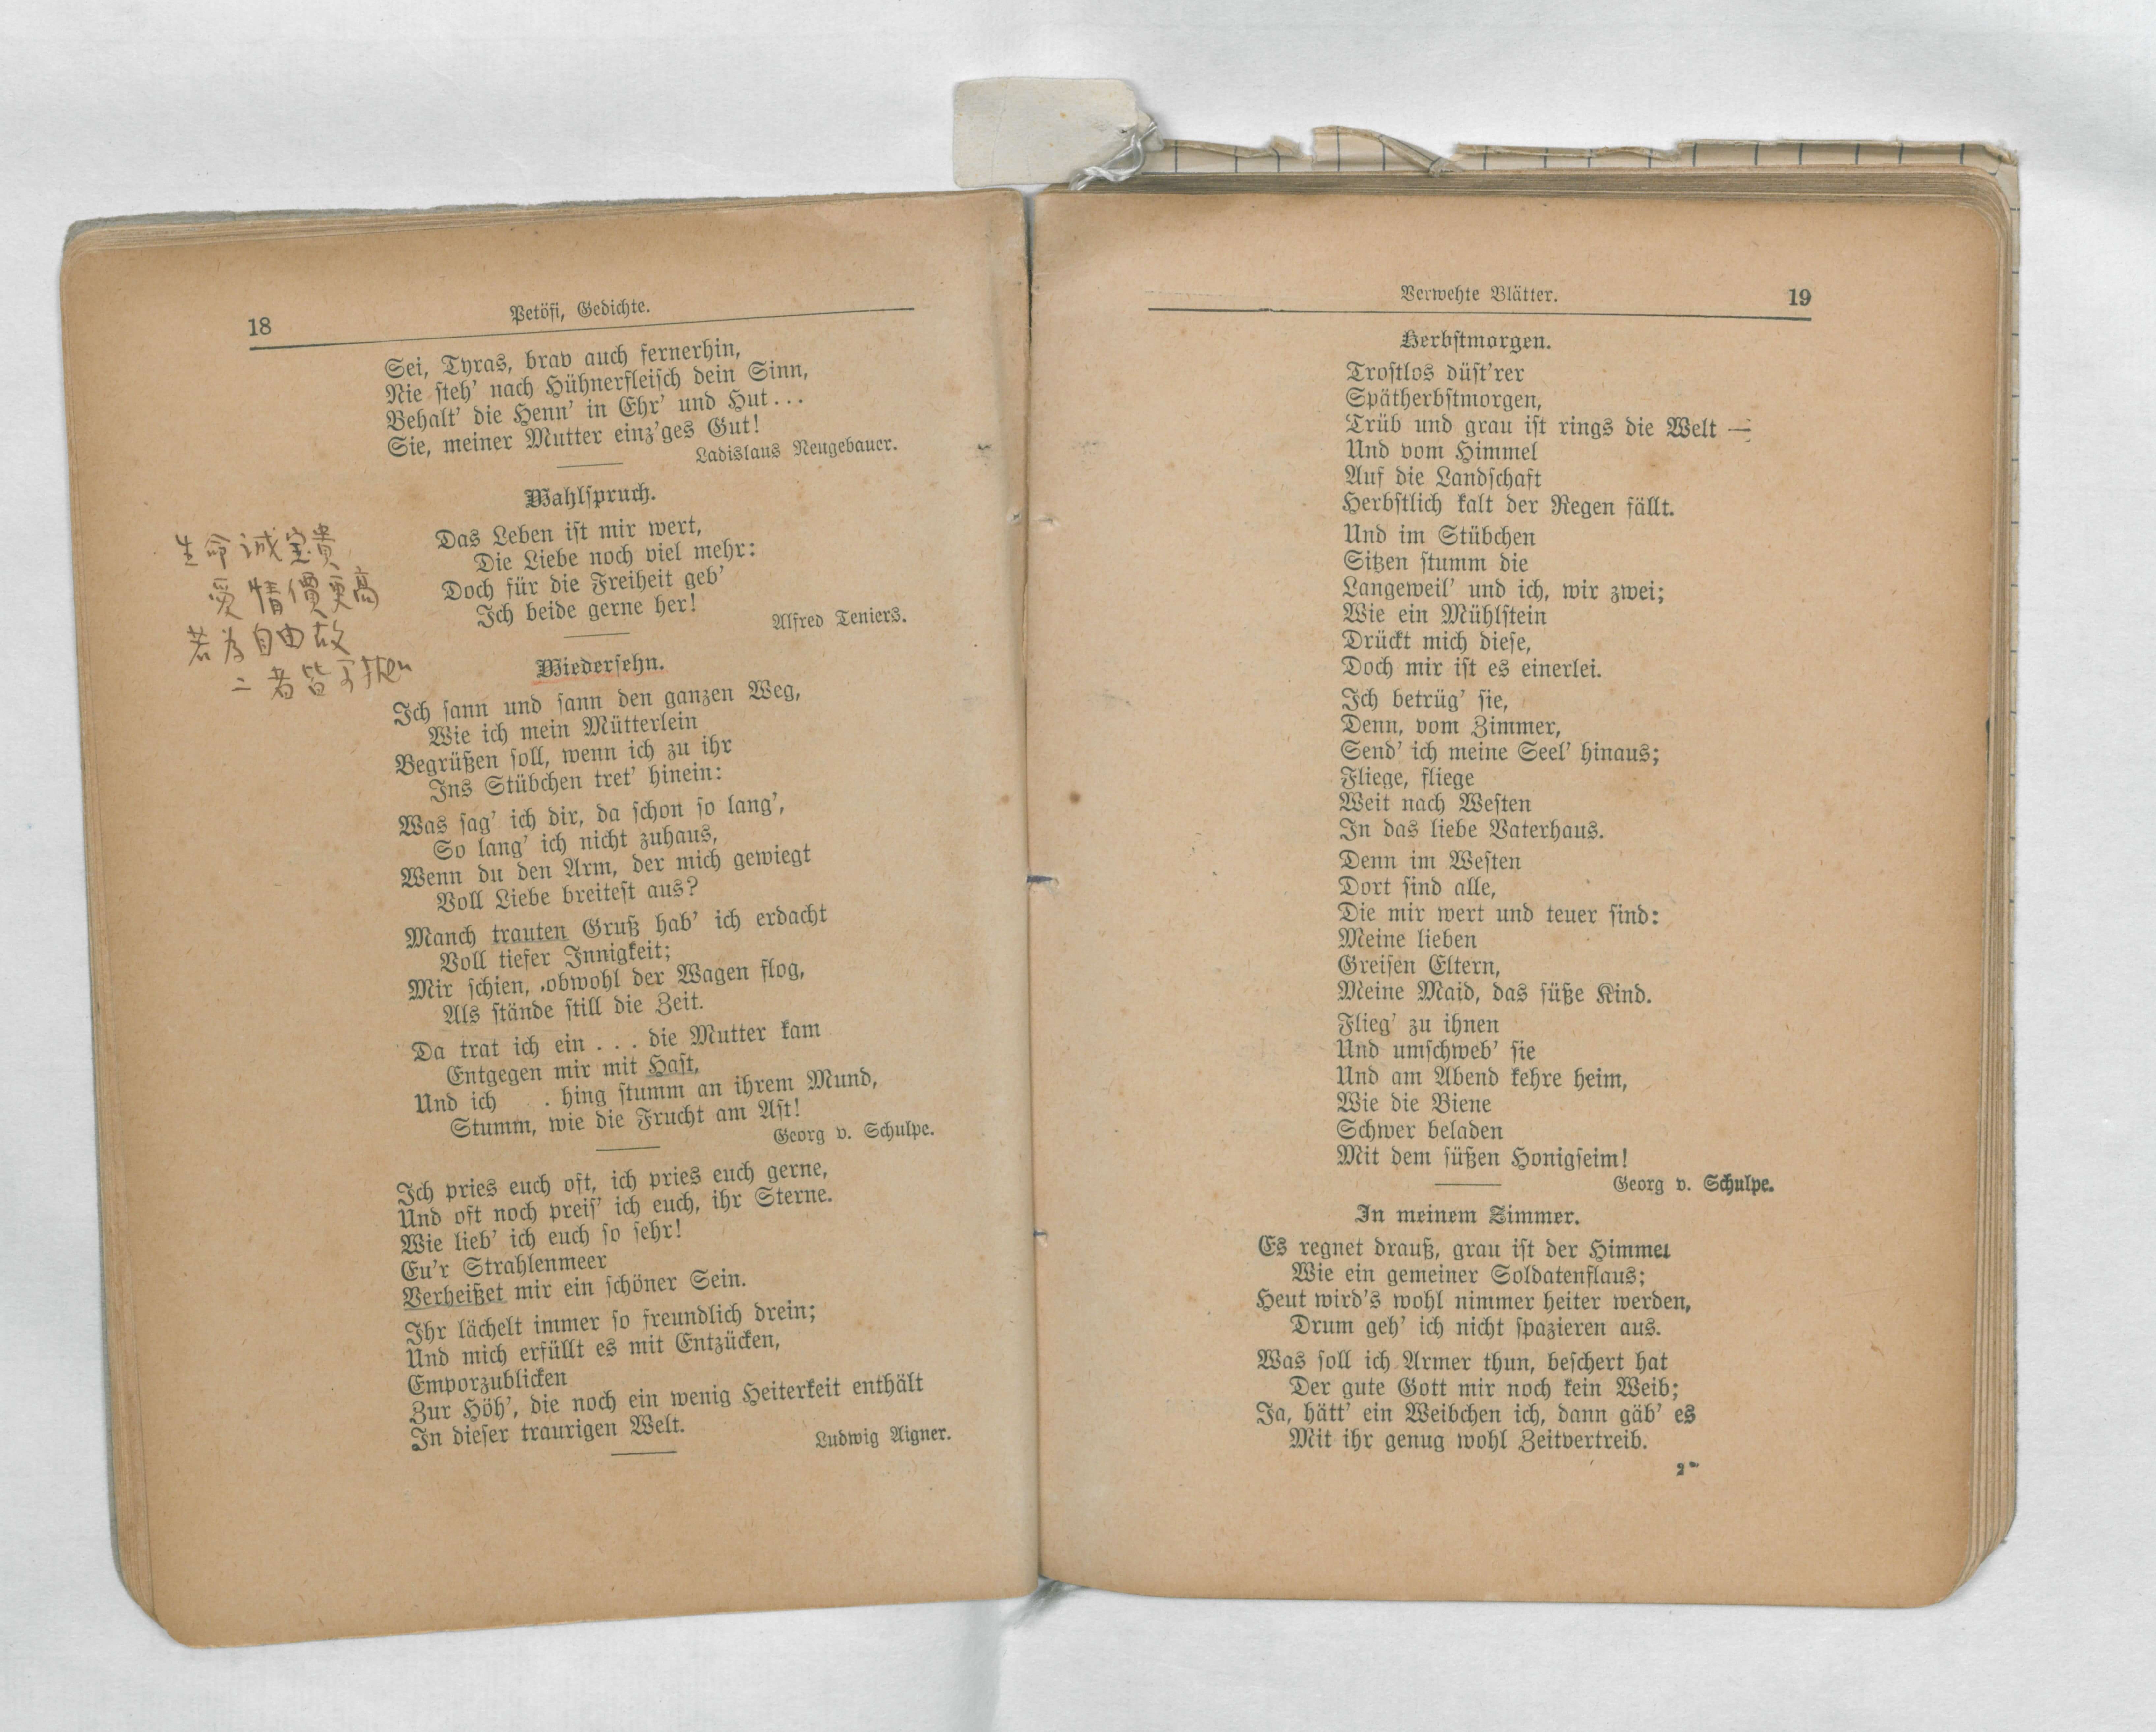 18
Petöfi, Gedichte.
Sei, Tyras, brav auch fernerhin,
Nie steh' nach Hühnerfleisch dein Sinn,
Behalt' die Henn' in Ehr' und Hut...
Sie, meiner Mutter einz'ges Gut!
Ladislaus Neugebauer.
Wahlspruch.
Das Leben ist mir wert,
Die Liebe noch viel mehr:
Doch für die Freiheit geb'
Ich beide gerne her!
Alfred Teniers.
生命诚宝贵
爱情價更高
若为自由故
二者皆可抛
Wiedersehn.
Ich sann und sann den ganzen Weg,
Wie ich mein Mütterlein
Begrüßen soll, wenn ich zu ihr
Ins Stübchen tret' hinein:
Was sag' ich dir, da schon so lang',
So lang' ich nicht zuhaus,
Wenn du den Arm, der mich gewiegt
Voll Liebe breitest aus?
Manch trauten Gruß hab' ich erdacht
Voll tiefer Innigkeit;
Mir schien, obwohl der Wagen flog,
Als stände still die Zeit.
Da trat ich ein . . . die Mutter kam
Entgegen mir mit Hast,
Und ich . hing stumm an ihrem Mund,
Stumm, wie die Frucht am Ast!
Georg v. Schulpe.
Ich pries euch oft, ich pries euch gerne,
Und oft noch preis' ich euch, ihr Sterne.
Wie lieb' ich euch so sehr!
Eu'r Strahlenmeer
Verheißet mir ein schöner Sein.
Ihr lächelt immer so freundlich drein;
Und mich erfüllt es mit Entzücken,
Emporzublicken
Zur Höh', die noch ein wenig Heiterkeit enthält
In dieser traurigen Welt.
Ludwig Aigner.
Verwehte Blätter.
19
Herbstmorgen.
Trostlos düst'rer
Spätherbstmorgen,
Trüb und grau ist rings die Welt —
Und vom Himmel
Auf die Landschaft
Herbstlich kalt der Regen fällt.
Und im Stübchen
Sitzen stumm die
Langeweil' und ich, wir zwei;
Wie ein Mühlstein
Drückt mich diese,
Doch mir ist es einerlei.
Ich betrüg' sie,
Denn, vom Zimmer,
Send' ich meine Seel' hinaus;
Fliege, fliege
Weit nach Westen
In das liebe Vaterhaus.
Denn im Westen
Dort sind alle,
Die mir wert und teuer sind:
Meine lieben
Greisen Eltern,
Meine Maid, das süße Kind.
Flieg' zu ihnen
Und umschweb' sie
Und am Abend kehre heim,
Wie die Biene
Schwer beladen
Mit dem süßen Honigseim!
Georg v. Schulpe.
In meinem Zimmer.
Es regnet drauß, grau ist der Himmel
Wie ein gemeiner Soldatenflaus;
Heut wird's wohl nimmer heiter werden,
Drum geh' ich nicht spazieren aus.
Was soll ich Armer thun, beschert hat
Der gute Gott mir noch kein Weib;
Ja, hätt' ein Weibchen ich, dann gäb' es
Mit ihr genug wohl Zeitvertreib.
2*